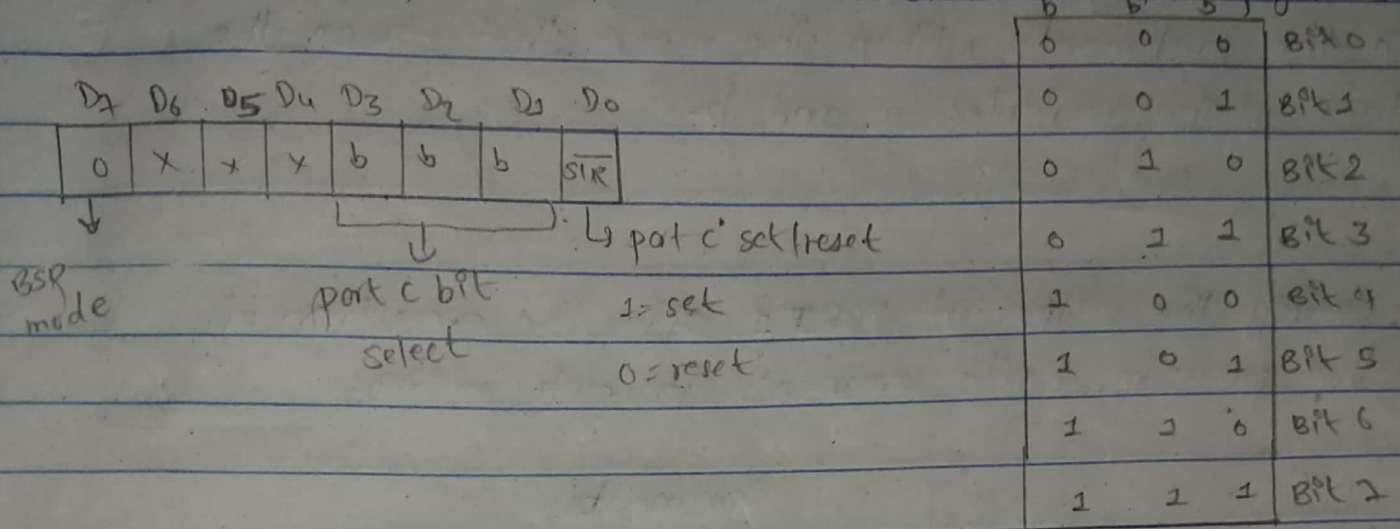 D7 D6 D5 D4 D3 D2 D1 D0
0 x x x b b b S/R̅
BSR mode
port c bit
select
port c set/reset
1 = set
0 = reset
b b b
0 0 0 Bit 0
0 0 1 Bit 1
0 1 0 Bit 2
0 1 1 Bit 3
1 0 0 Bit 4
1 0 1 Bit 5
1 1 0 Bit 6
1 1 1 Bit 7